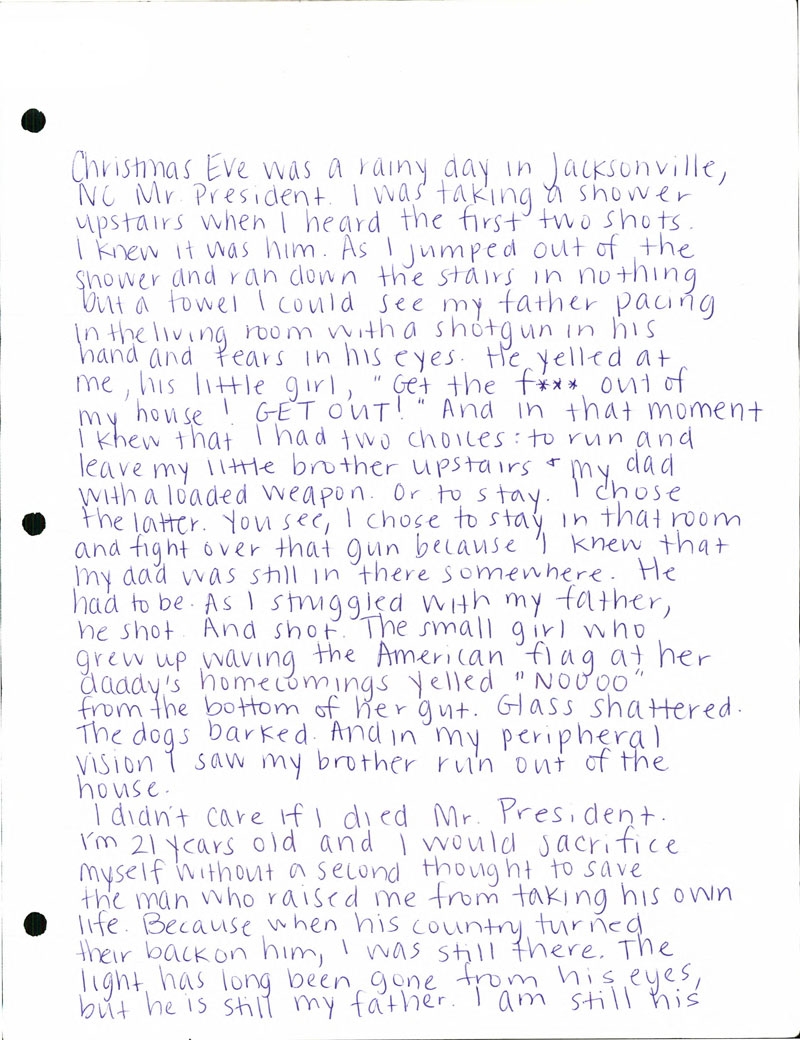 Christmas Eve was a rainy day in Jacksonville,
NC Mr. President. I was taking a shower
upstairs when I heard the first two shots.
I knew it was him. As I jumped out of the
shower and ran down the stairs in nothing
but a towel I could see my father pacing
in the living room with a shotgun in his
hand and tears in his eyes. He yelled at
me, his little girl, "Get the f*** out of
my house! GET OUT!" And in that moment
I knew that I had two choices: to run and
leave my little brother upstairs + my dad
with a loaded weapon. Or to stay. I chose
the latter. You see, I chose to stay in that room
and fight over that gun because I knew that
my dad was still in there somewhere. He
had to be. As I struggled with my father,
he shot. And shot. The small girl who
grew up waving the American flag at her
daddy's homecomings yelled "NOOOO"
from the bottom of her gut. Glass shattered.
The dogs barked. And in my peripheral
vision I saw my brother run out of the
house.
I didn't care if I died Mr. President.
I'm 21 years old and I would sacrifice
myself without a second thought to save
the man who raised me from taking his own
life. Because when his country turned
their back on him, I was still there. The
light has long been gone from his eyes,
but he is still my father. I am still his